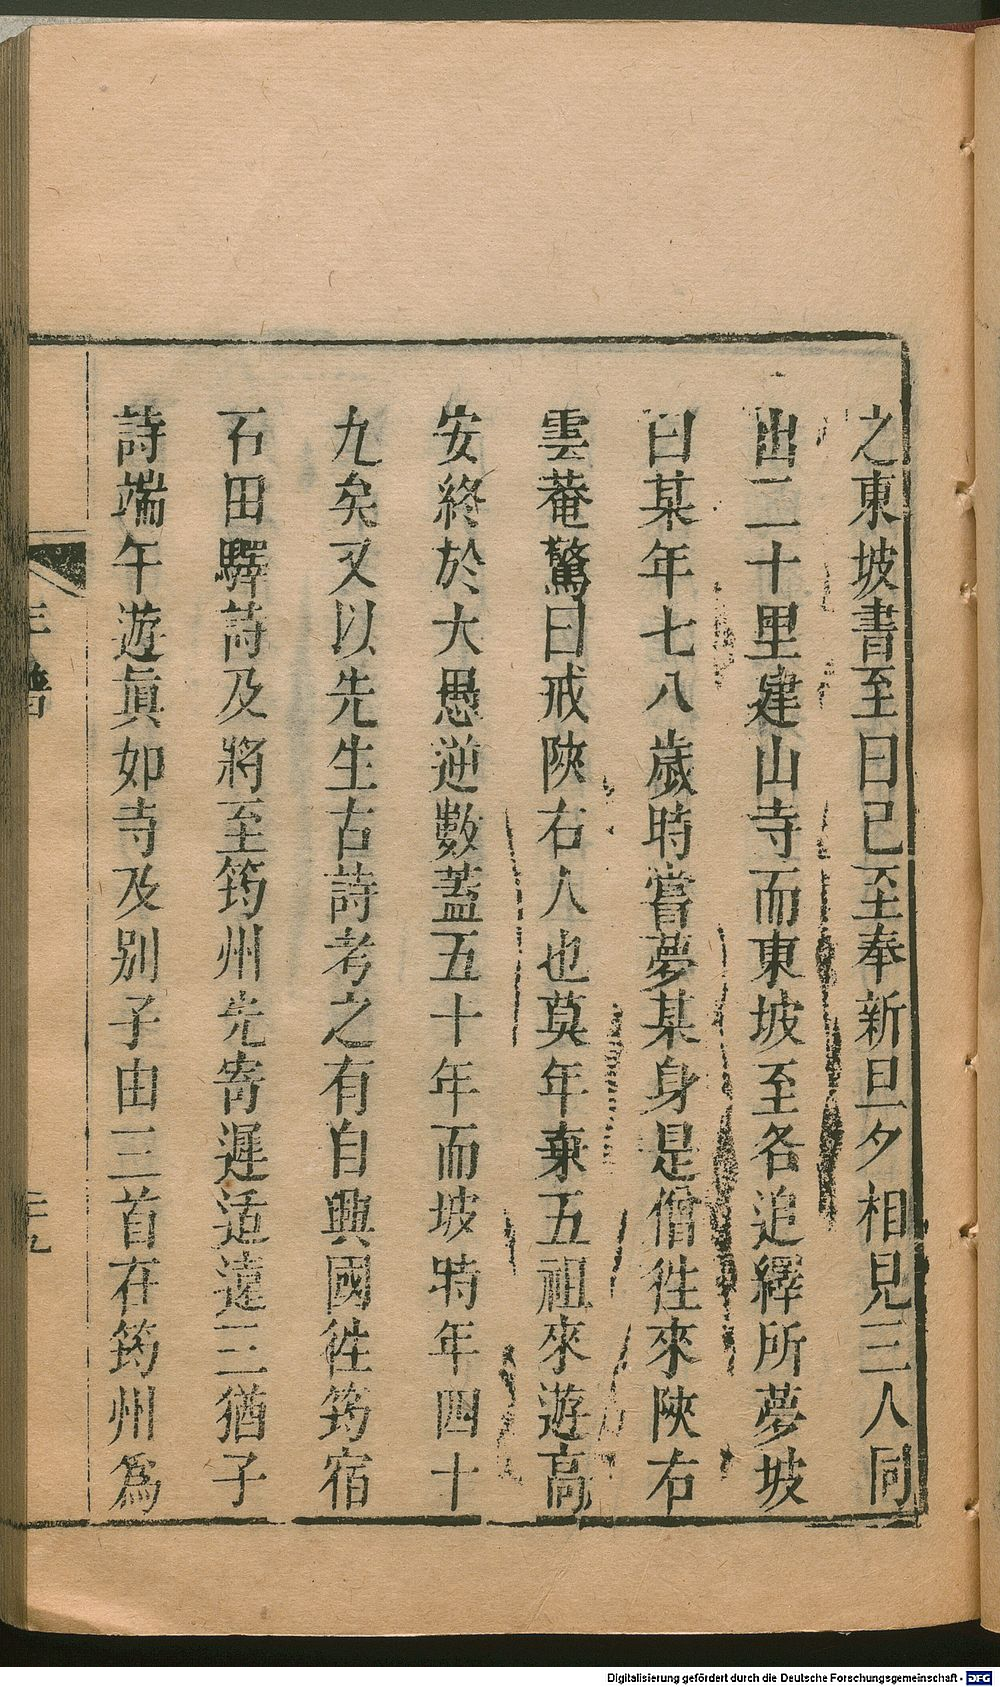 之東坡書至曰已至奉新旦夕相見三人同
出二十里建山寺而東坡至各追繹所夢坡
曰某年七八歲時嘗夢某身是僧徃來陜右
雲菴驚曰戒陜右人也莫年棄五祖來遊高
安終於大愚逆數蓋五十年而坡時年四十
九矣又以先生古詩考之有自興國徃筠宿
石田驛詩及將至筠州先寄遲适遠三猶子
詩端午遊眞如寺及别子由三首在筠州爲
年譜
三九
Digitalisierung gefördert durch die Deutsche Forschungsgemeinschaft - DFG